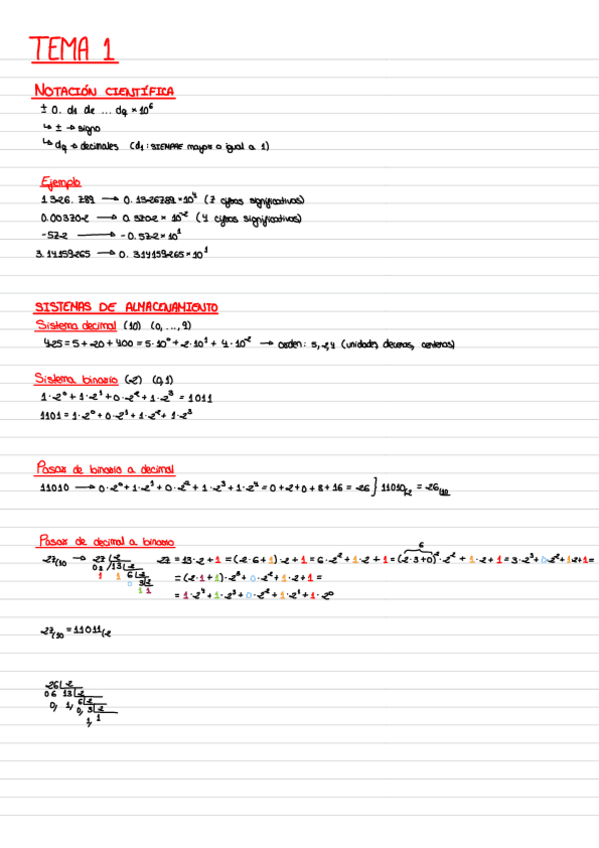 TEMA 1
NOTACIÓN CIENTÍFICA
± 0. d1 de ... dq × 10⁶
↳ ± → signo
↳ dq → decimales (d1: SIEMPRE mayor o igual a 1)
Ejemplo
1326.789 → 0.1326789 × 10⁴ (7 cifras significativas)
0.003702 → 0.3702 × 10⁻² (4 cifras significativas)
-5.72 → -0.572 × 10¹
3.14159265 → 0.314159265 × 10¹
SISTEMAS DE ALMACENAMIENTO
Sistema decimal (10) (0, ..., 9)
425 = 5 + 20 + 400 = 5·10⁰ + 2·10¹ + 4·10⁻² → orden: 5,2,4 (unidades, decenas, centenas)
Sistema binario (2) (0,1)
1·2⁰ + 1·2¹ + 0·2² + 1·2³ = 1011
1101 = 1·2⁰ + 0·2¹ + 1·2² + 1·2³
Pasar de binario a decimal
11010 → 0·2⁰ + 1·2¹ + 0·2² + 1·2³ + 1·2⁴ = 0 + 2 + 0 + 8 + 16 = 26 } 11010/2 = 26/10
Pasar de decimal a binario
6
27/10 → 27 |2 27 = 13·2 + 1 = (2·6 + 1)·2 + 1 = 6·2² + 1·2 + 1 = (2·3 + 0)·2² + 1·2 + 1 = 3·2³ + 0·2² + 1·2 + 1 =
07 13 |2 = (2·1 + 1)·2³ + 0·2² + 1·2 + 1 =
1 1 6 |2
0 3 |2 = 1·2⁴ + 1·2³ + 0·2² + 1·2¹ + 1·2⁰
1 1
27/10 = 11011/2
26 |2
06 13 |2
0, 1, 6 |2
0, 3 |2
1, 1